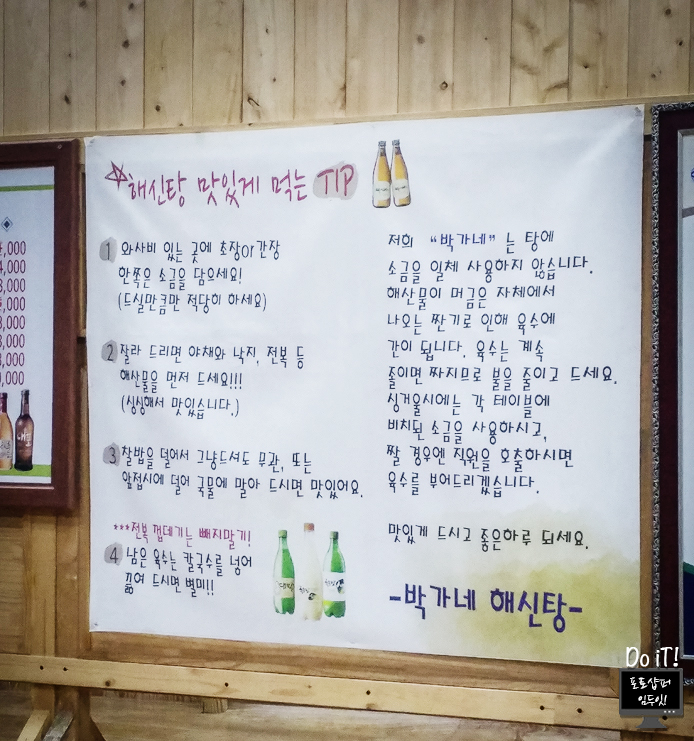 해신탕 맛있게 먹는 TIP
1 와사비 있는 곳에 초장or간장
한쪽은 소금을 담으세요!
(드실만큼만 적당히 하세요)
2 잘라 드리면 야채와 낙지, 전복 등
해산물을 먼저 드세요!!!
(싱싱해서 맛있습니다.)
3 찰밥을 덜어서 그냥드셔도 무관, 또는
앞접시에 덜어 국물에 말아 드시면 맛있어요.
***전복 껍데기는 빼지말기!
4 남은 육수는 칼국수를 넣어
끓여 드시면 별미!!
저희 “박가네” 는 탕에
소금을 일체 사용하지 않습니다.
해산물이 머금은 자체에서
나오는 짠기로 인해 육수에
간이 됩니다. 육수는 계속
졸이면 짜지므로 불을 줄이고 드세요.
싱거울시에는 각 테이블에
비치된 소금을 사용하시고,
짤 경우엔 직원을 호출하시면
육수를 부어드리겠습니다.
맛있게 드시고 좋은하루 되세요.
-박가네 해신탕-
,000
4,000
3,000
,000
,000
,000
,000
0,000
Do iT!
포토샵퍼
임두잇!